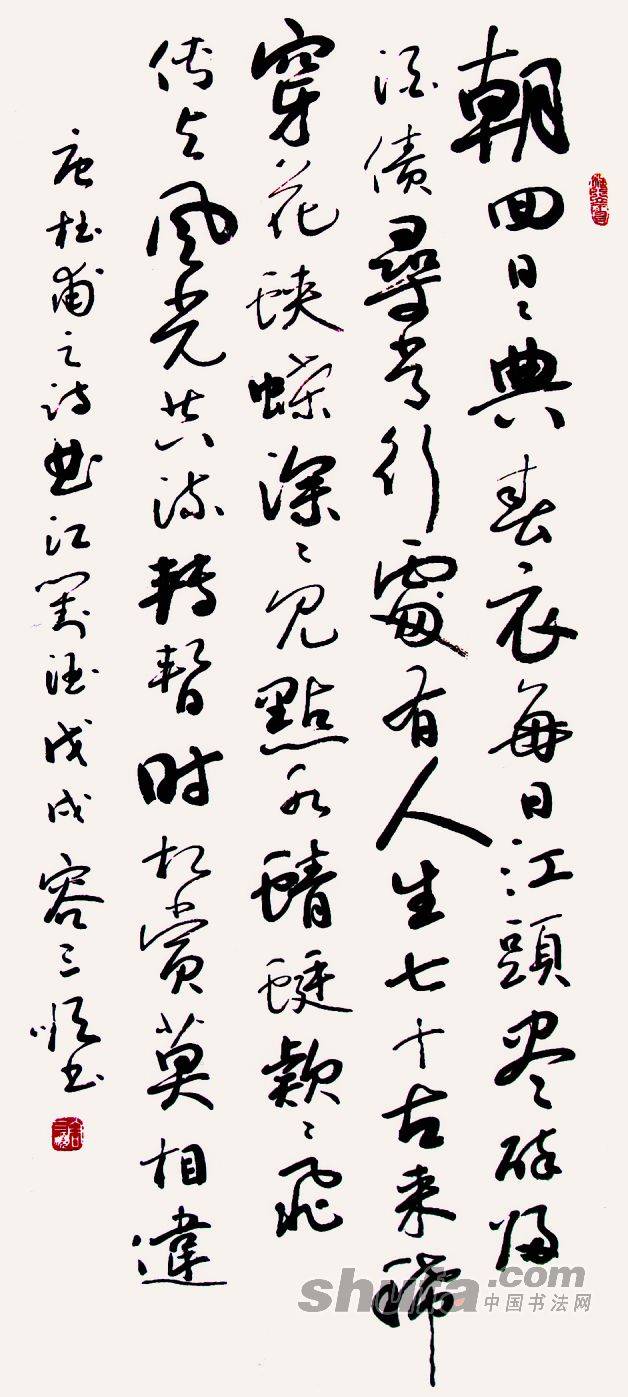 朝回日〻典春衣每日江頭尽醉归
酒债尋常行處有人生七十古来稀
穿花蛱蝶深〻见點水蜻蜓款〻飛
传与風光共流轉暂时相赏莫相違
唐杜甫之诗曲江對酒戊戌容三顺书
shufa.com
中国书法网